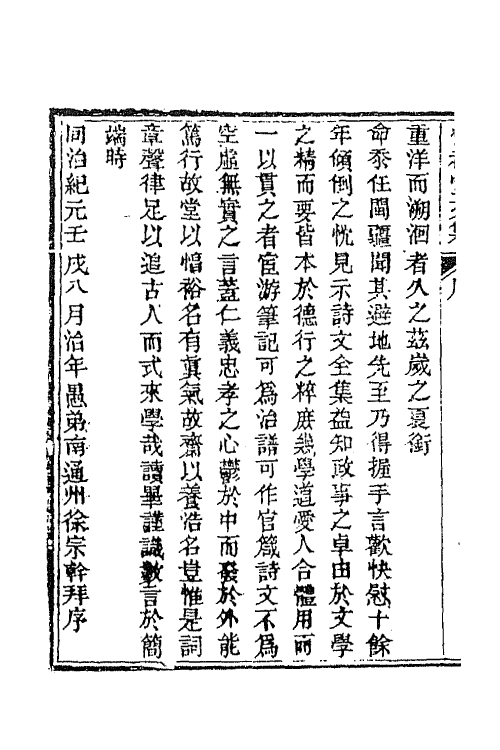 重洋而溯洄者久之茲歲之夏銜
命忝任閩疆聞其避地先至乃得握手言歡快慰十餘
年傾倒之忱見示詩文全集益知政事之卓由於文學
之精而要皆本於德行之粹庶幾學道愛人合體用而
一以貫之者宦游筆記可為治譜可作官箴詩文不為
空虛無實之言蓋仁義忠孝之心鬱於中而發於外能
篤行故堂以慥裕名有眞氣故齋以養浩名豈惟是詞
章聲律足以追古人而式來學哉讀畢謹識數言於簡
端時
同治紀元壬戌八月治年愚弟南通州徐宗幹拜序